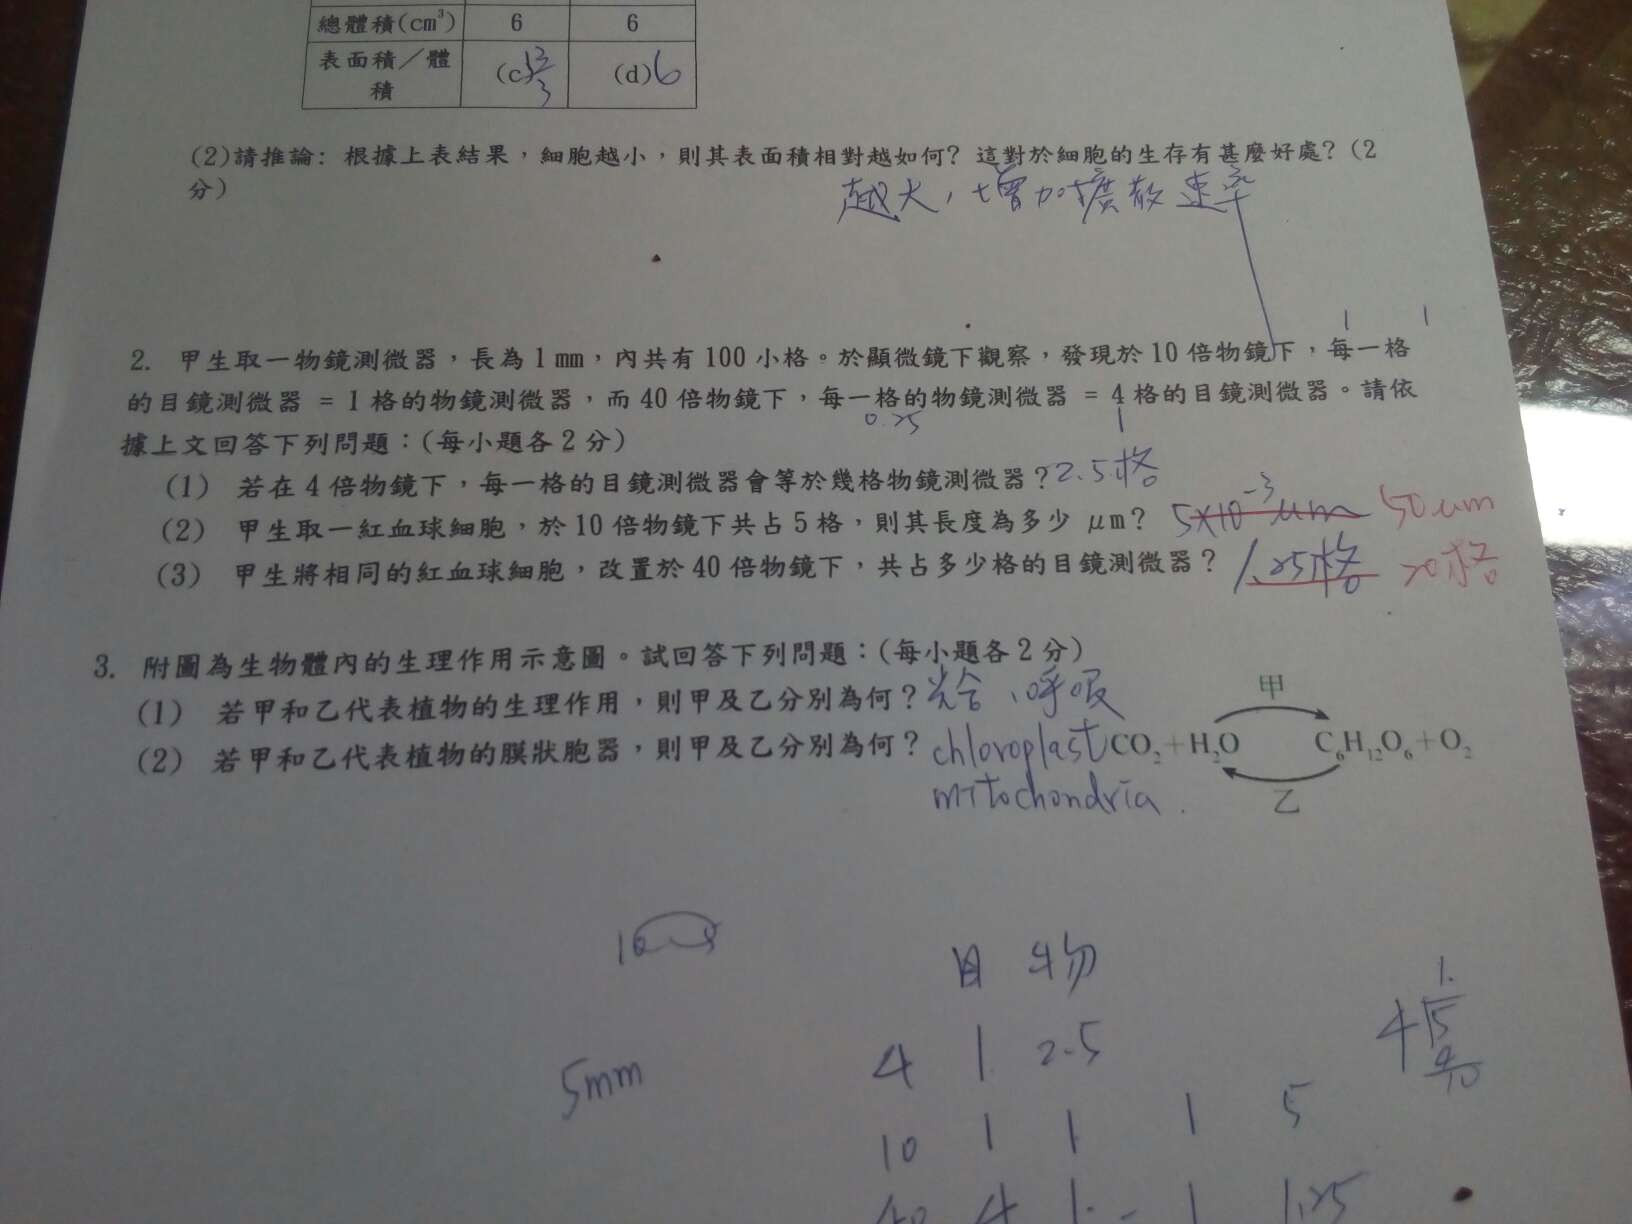 總體積(cm³) 6 6
表面積／體積 (c)12/3 (d)6
(2)請推論: 根據上表結果，細胞越小，則其表面積相對越如何? 這對於細胞的生存有甚麼好處? (2
分)
越大，增加擴散速率
2. 甲生取一物鏡測微器，長為1mm，內共有100小格。於顯微鏡下觀察，發現於10倍物鏡下，每一格
的目鏡測微器 = 1格的物鏡測微器，而40倍物鏡下，每一格的物鏡測微器 = 4格的目鏡測微器。請依
0.25 1
據上文回答下列問題：(每小題各2分)
(1) 若在4倍物鏡下，每一格的目鏡測微器會等於幾格物鏡測微器？2.5格
(2) 甲生取一紅血球細胞，於10倍物鏡下共占5格，則其長度為多少 μm? 5×10⁻³μm 50um
(3) 甲生將相同的紅血球細胞，改置於40倍物鏡下，共占多少格的目鏡測微器？ 1.25格 20格
3. 附圖為生物體內的生理作用示意圖。試回答下列問題：(每小題各2分)
(1) 若甲和乙代表植物的生理作用，則甲及乙分別為何？光合、呼吸
(2) 若甲和乙代表植物的膜狀胞器，則甲及乙分別為何？chloroplast
mitochondria.
甲
CO₂+H₂O C₆H₁₂O₆+O₂
乙
目 物
4 1 2.5
5mm
10 1 1 1 5
40 4 1 - 1 1.25